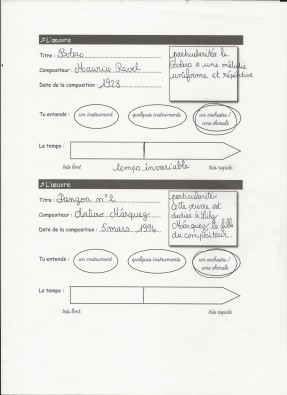 ♫ L'œuvre
Titre : Boléro
Compositeur : Maurice Ravel
Date de la composition : 1928
particularités le
Boléro a une mélodie
uniforme et répétitive
Tu entends :
un instrument
quelques instruments
un orchestre /
une chorale
Le tempo :
très lent
tempo invariable
très rapide
♫ L'œuvre
Titre : Danzon n°2
Compositeur : Arturo Márquez
Date de la composition : 5 mars 1994
particularité
cette œuvre est
dédiée à Lily
Márquez, la fille
du compositeur.
Tu entends :
un instrument
quelques instruments
un orchestre /
une chorale
Le tempo :
très lent
très rapide